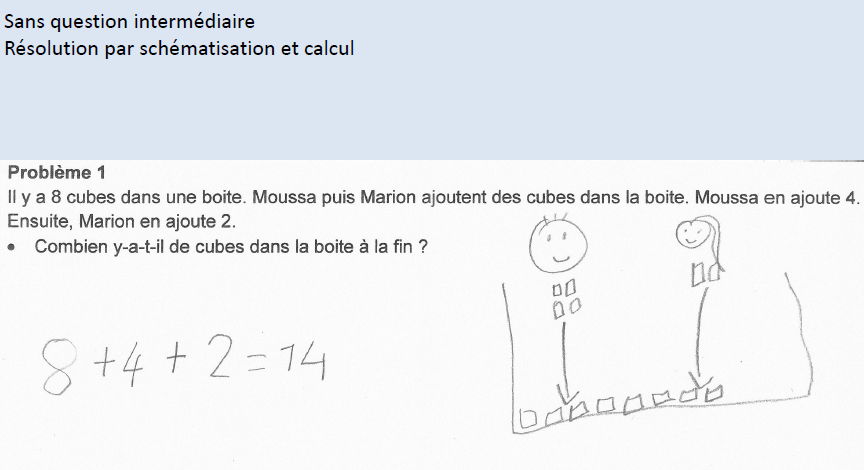 Sans question intermédiaire
Résolution par schématisation et calcul
Problème 1
Il y a 8 cubes dans une boite. Moussa puis Marion ajoutent des cubes dans la boite. Moussa en ajoute 4.
Ensuite, Marion en ajoute 2.
• Combien y-a-t-il de cubes dans la boite à la fin ?
8 + 4 + 2 = 14